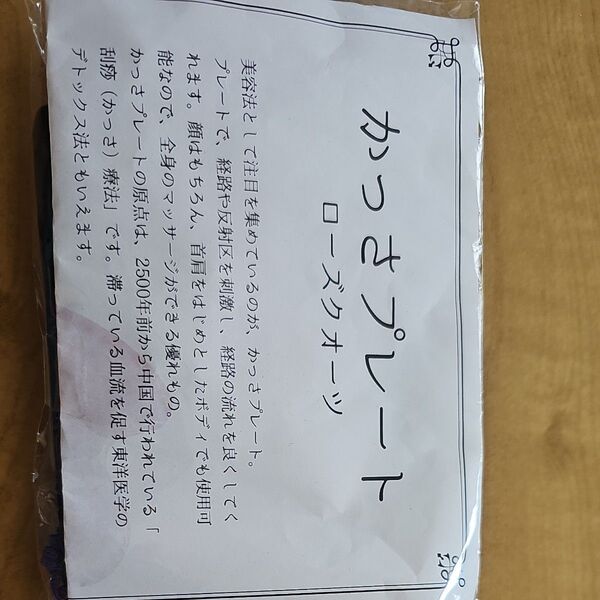 かっさプレート
ローズクオーツ
美容法として注目を集めているのが、かっさプレート。
プレートで、経路や反射区を刺激し、経路の流れを良くしてく
れます。顔はもちろん、首肩をはじめとしたボディでも使用可
能なので、全身のマッサージができる優れもの。
かっさプレートの原点は、2500年前から中国で行われている「
刮痧（かっさ）療法」です。滞っている血流を促す東洋医学の
デトックス法ともいえます。